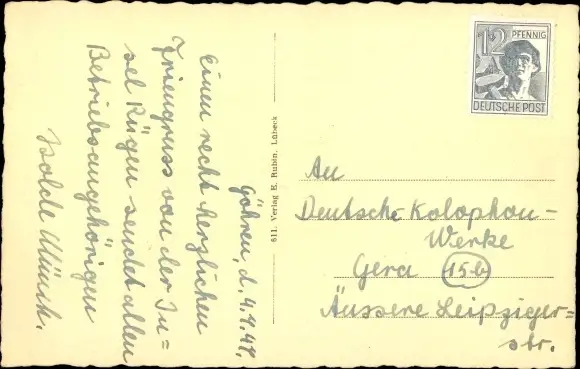 Göhren, d. 4.9.48.
Einen recht herzlichen
Feriengruss von der In=
sel Rügen sendet allen
Betriebsangehörigen
Isolde Münch.
611. Verlag E. Rubin, Lübeck
12 PFENNIG
DEUTSCHE POST
An
Deutsche Kolophon-
Werke
Gera (15b)
Äussere Leipziger=
str.